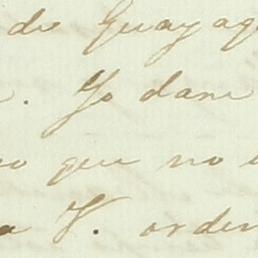 de Guayaq
. Yo dare
que no
V. orden